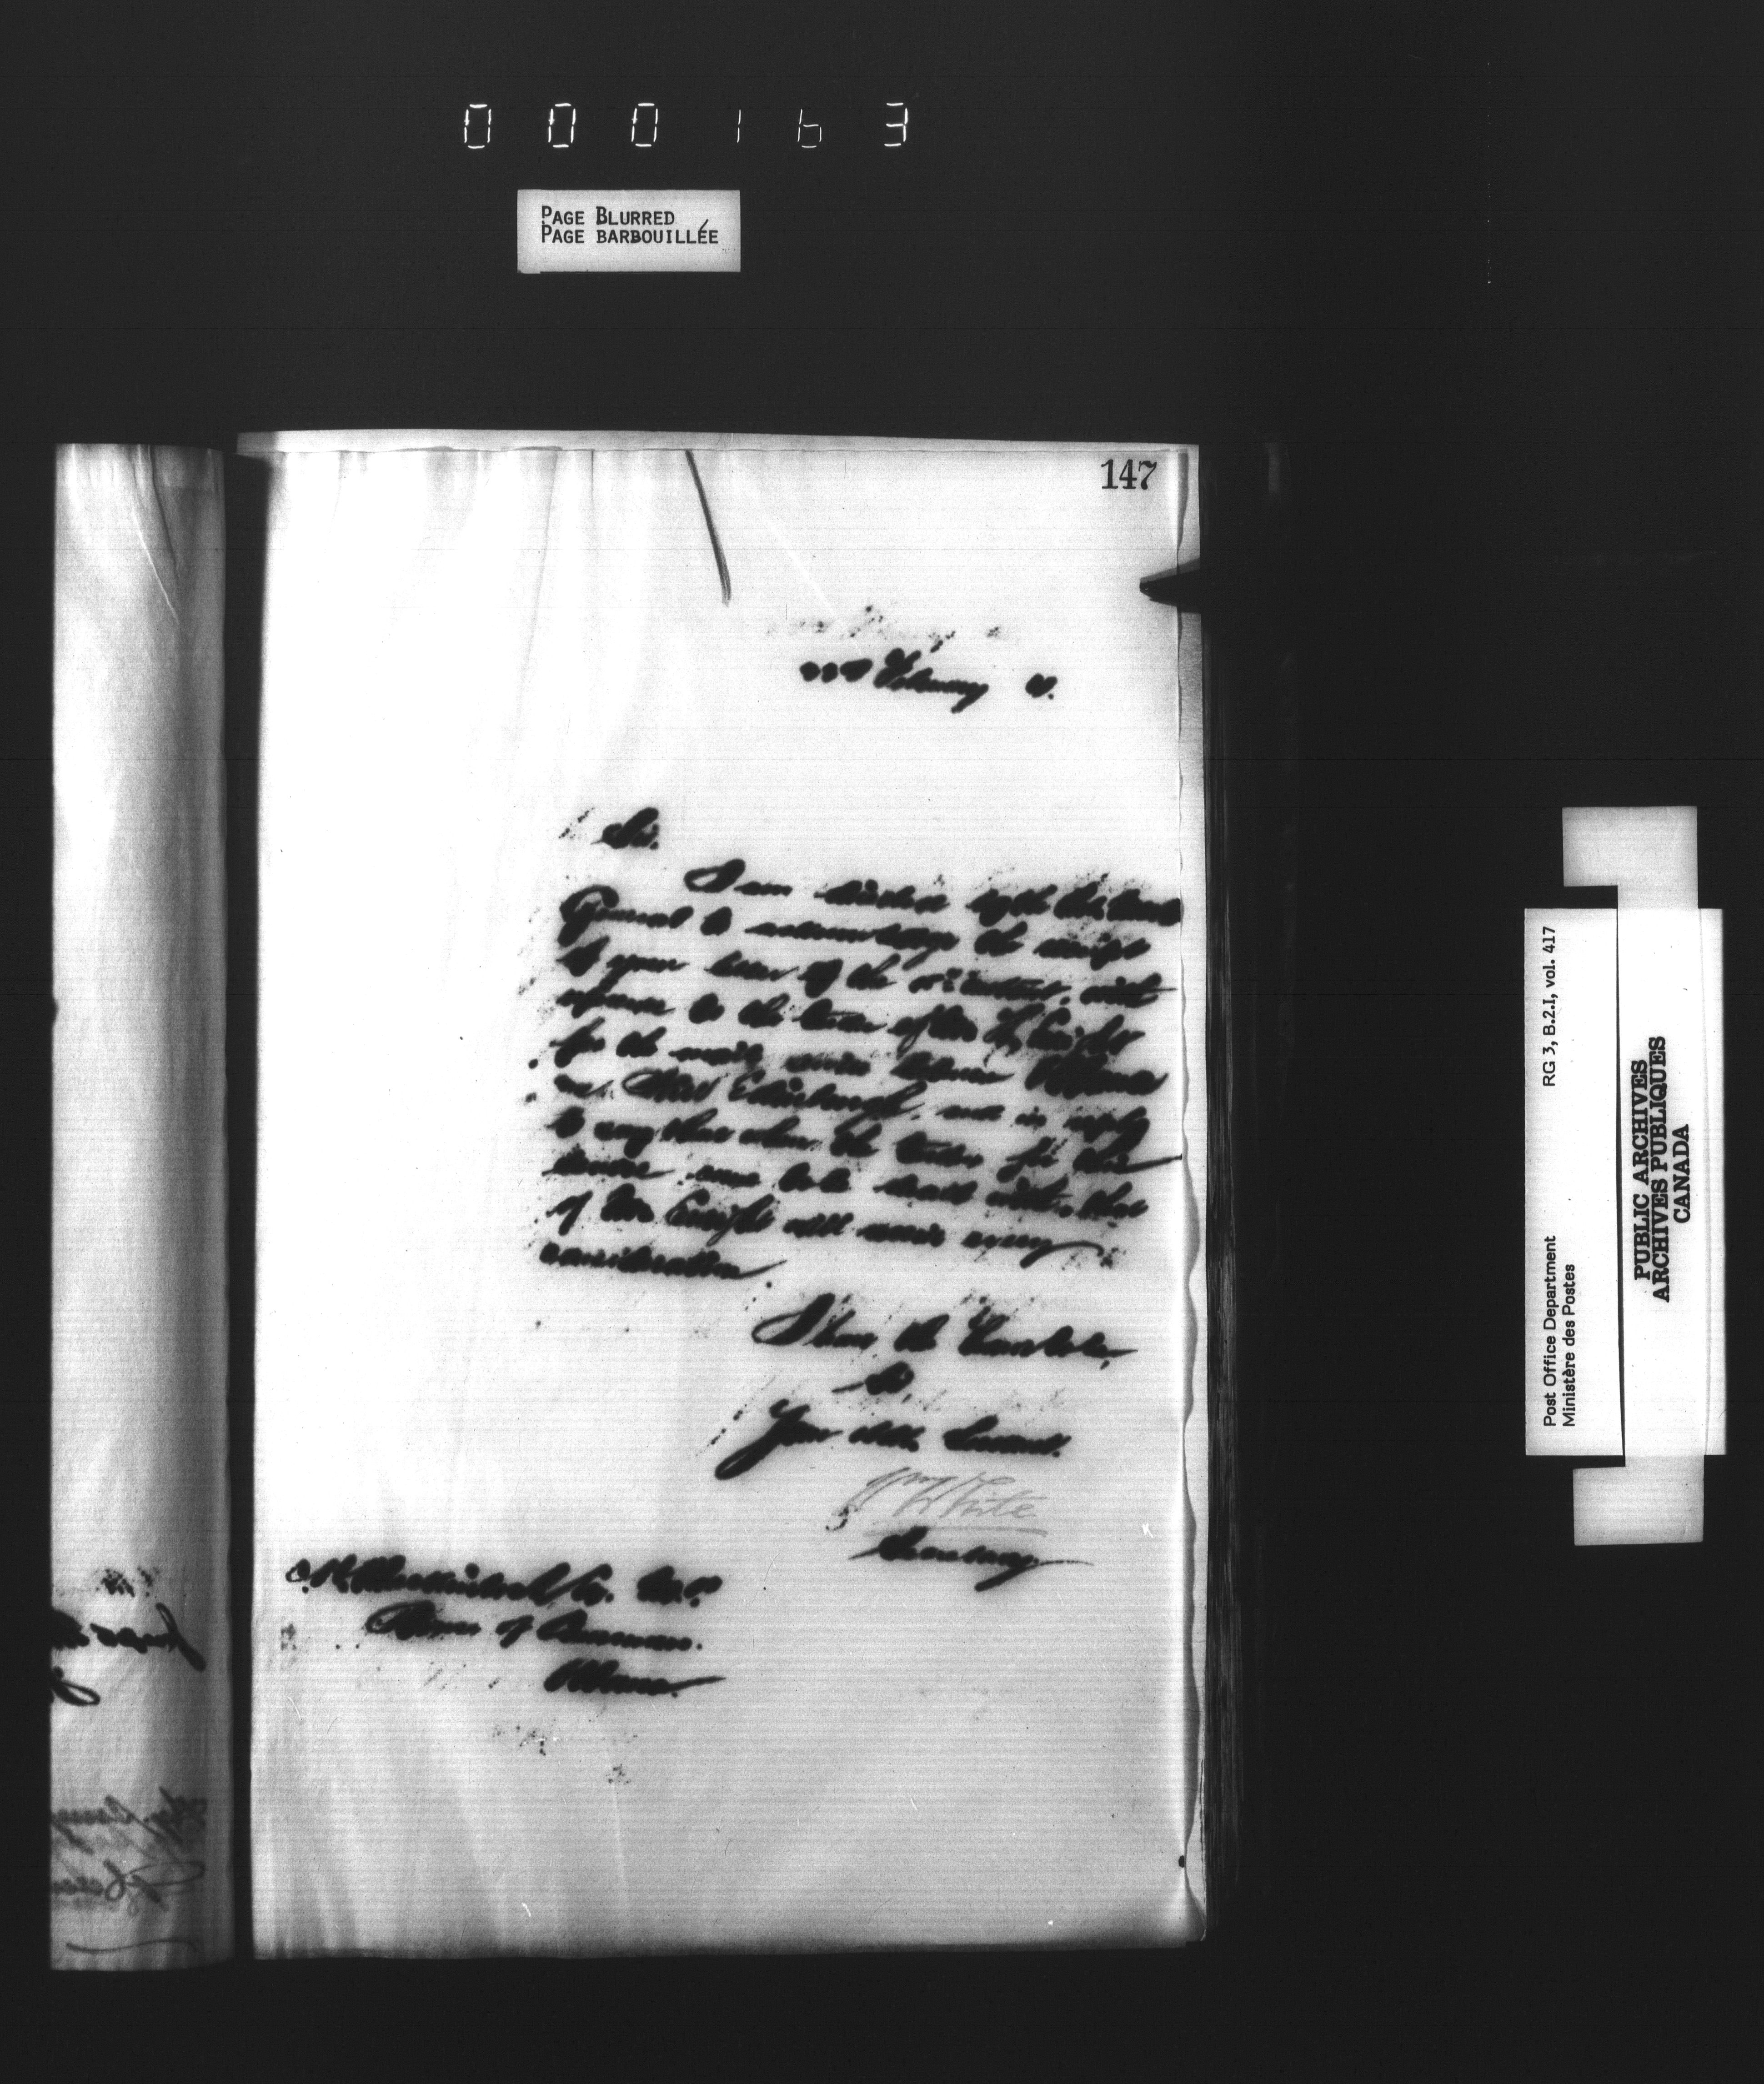 000163
PAGE BLURRED
PAGE BARBOUILLÉE
147
February
Sir,
I am directed by the
General to acknowledge the receipt
of your letter of the instant, with
reference to the tender of Mr Enright
for the mail service between Ottawa
and New Edinburgh, and in reply
to say that when the tenders for this
service come to be dealt with, that
of Mr Enright will receive every
consideration.
I have the honor to be,
Sir,
Your obdt. Servant.
Wm White
Secretary.
C.H. Mackintosh, Esq. M.P.
House of Commons.
Ottawa.
Post Office Department
Ministère des Postes
RG 3, B.2.I, vol. 417
PUBLIC ARCHIVES
ARCHIVES PUBLIQUES
CANADA